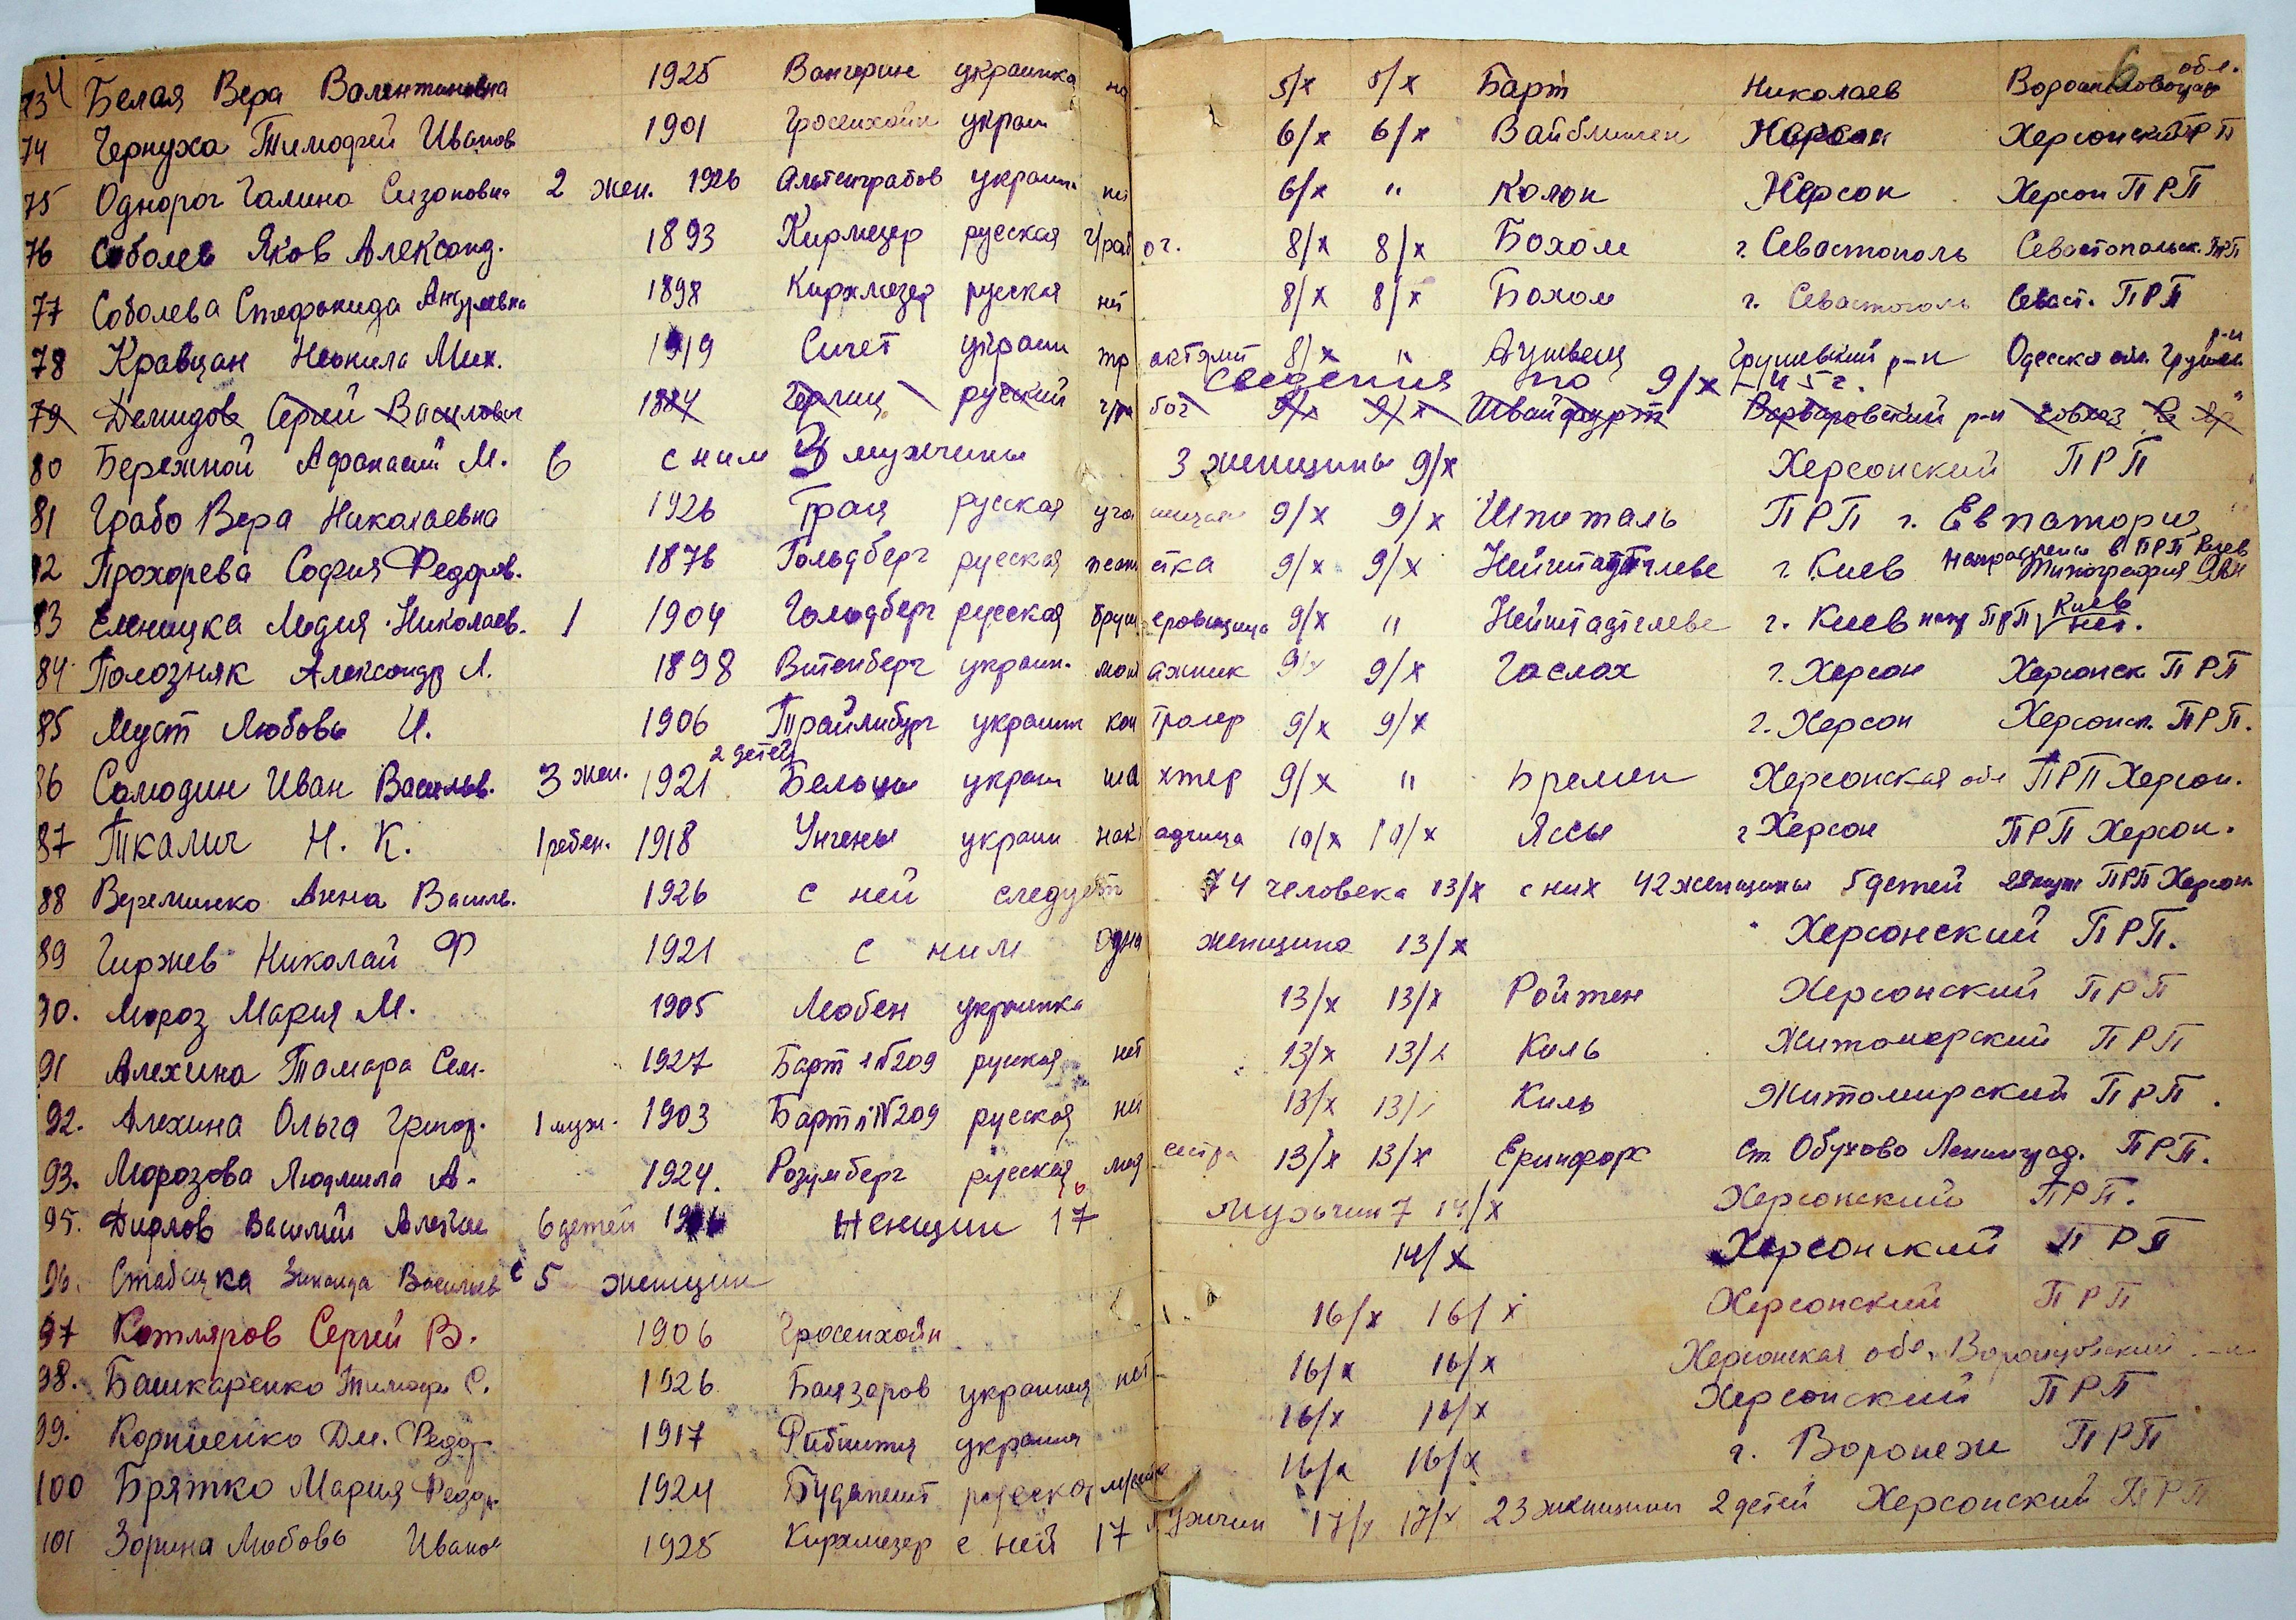 73 Белая Вера Валентиновна 1925 Вангерин украинка 5/X 5/X Барт Николаев обл.
74 Чернуха Тимофей Иванов 1901 Гросенхойн украин 6/X 6/X Вайблинген Херсон Херсонский ПРП
75 Однорог Галина Сизоновна 2 жен. 1926 Альтенграбов украин. нет 6/X " Колон Херсон Херсон ПРП
76 Соболев Яков Александ. 1893 Кирмезер русская ч/рабоч. 8/X 8/X Бохом г. Севастополь Севастопольск. ПРП
77 Соболева Стефанида Андреевна 1898 Кирхмезер русская нет 8/X 8/X Бохом г. Севастополь Севаст. ПРП
78 Кравцан Неонила Мих. 1919 Сигет украин 8/X " Аушвец Грушевский р-н Одесская обл. р-н
сведения по 9/X-45г.
79 Демидов Сергей Василович 1884 Герлиц русский 9/X 9/X Швайдфурт Варваровский р-н совхоз
80 Бережной Афанасий М. 6 с ним 3 мужчины 3 женщины 9/X Херсонский ПРП
81 Грабо Вера Николаевна 1926 русская 9/X 9/X Шпиталь ПРП г. Евпатория
82 Прохорева София Федоров. 1876 Гольдберг русская 9/X 9/X Нейштадтглеве г. Киев направлена в ПРП Киев
83 Еленицка Лидия Николаев. 1 1904 Гольдберг русская 9/X " Нейштадтглеве г. Киев ПРП Киев нет.
84 Полозняк Александр Л. 1898 Витенберг украин. монтажник 9/X 9/X Гаслах г. Херсон Херсонск ПРП
85 Муст Любовь И. 1906 Трайлибург украин контролер 9/X 9/X г. Херсон Херсонск. ПРП.
86 Самодин Иван Васильев. 3 жен. 2 детей 1921 Бельцы украин шахтер 9/X " Бремен Херсонская обл ПРП Херсон.
87 Ткалич Н. К. 1 ребен. 1918 Унгены украин 10/X 10/X Яссы г Херсон ПРП Херсон.
88 Веременко Анна Василь. 1926 с ней следует 74 человека 13/X с них 42 женщины 5 детей ПРП Херсон
89 Гиржев Николай Ф 1921 с ним одна женщина 13/X Херсонский ПРП.
90. Мороз Мария М. 1905 Любен украинка 13/X 13/X Ройтен Херсонский ПРП
91 Алехина Тамара Сем. 1927 Барт №209 русская нет 13/X 13/X Киль Житомирский ПРП
92. Алехина Ольга Григор. 1 муж. 1903 Барт №209 русская нет 13/X 13/X Киль Житомирский ПРП.
93. Морозова Людмила А. 1924. Розумберг русская медсестра 13/X 13/X Ст Обухово Ленинград. ПРП.
95. Дирлов Василий 6 детей Женщин 17 Мужчин 7 14/X Херсонский ПРП.
96. Зинаида с 5 женщин 14/X Херсонский ПРП
97 Котляров Сергей В. 1906 Гросенхойн 16/X 16/X Херсонский ПРП
98. Башкаренко Тимоф. С. 1926 нет 16/X 16/X Херсонская обл.
99. Корниенко Дм. Федор. 1917 украин 16/X 16/X Херсонский ПРП
100 Брятко Мария Федор. 1924 Будапешт русская 16/X 16/X г. Воронеж ПРП
101 Зорина Любовь Иванов 1925 Кирхмезер с ней 17 мужчин 17/X 17/X 23 женщины 2 детей Херсонский ПРП